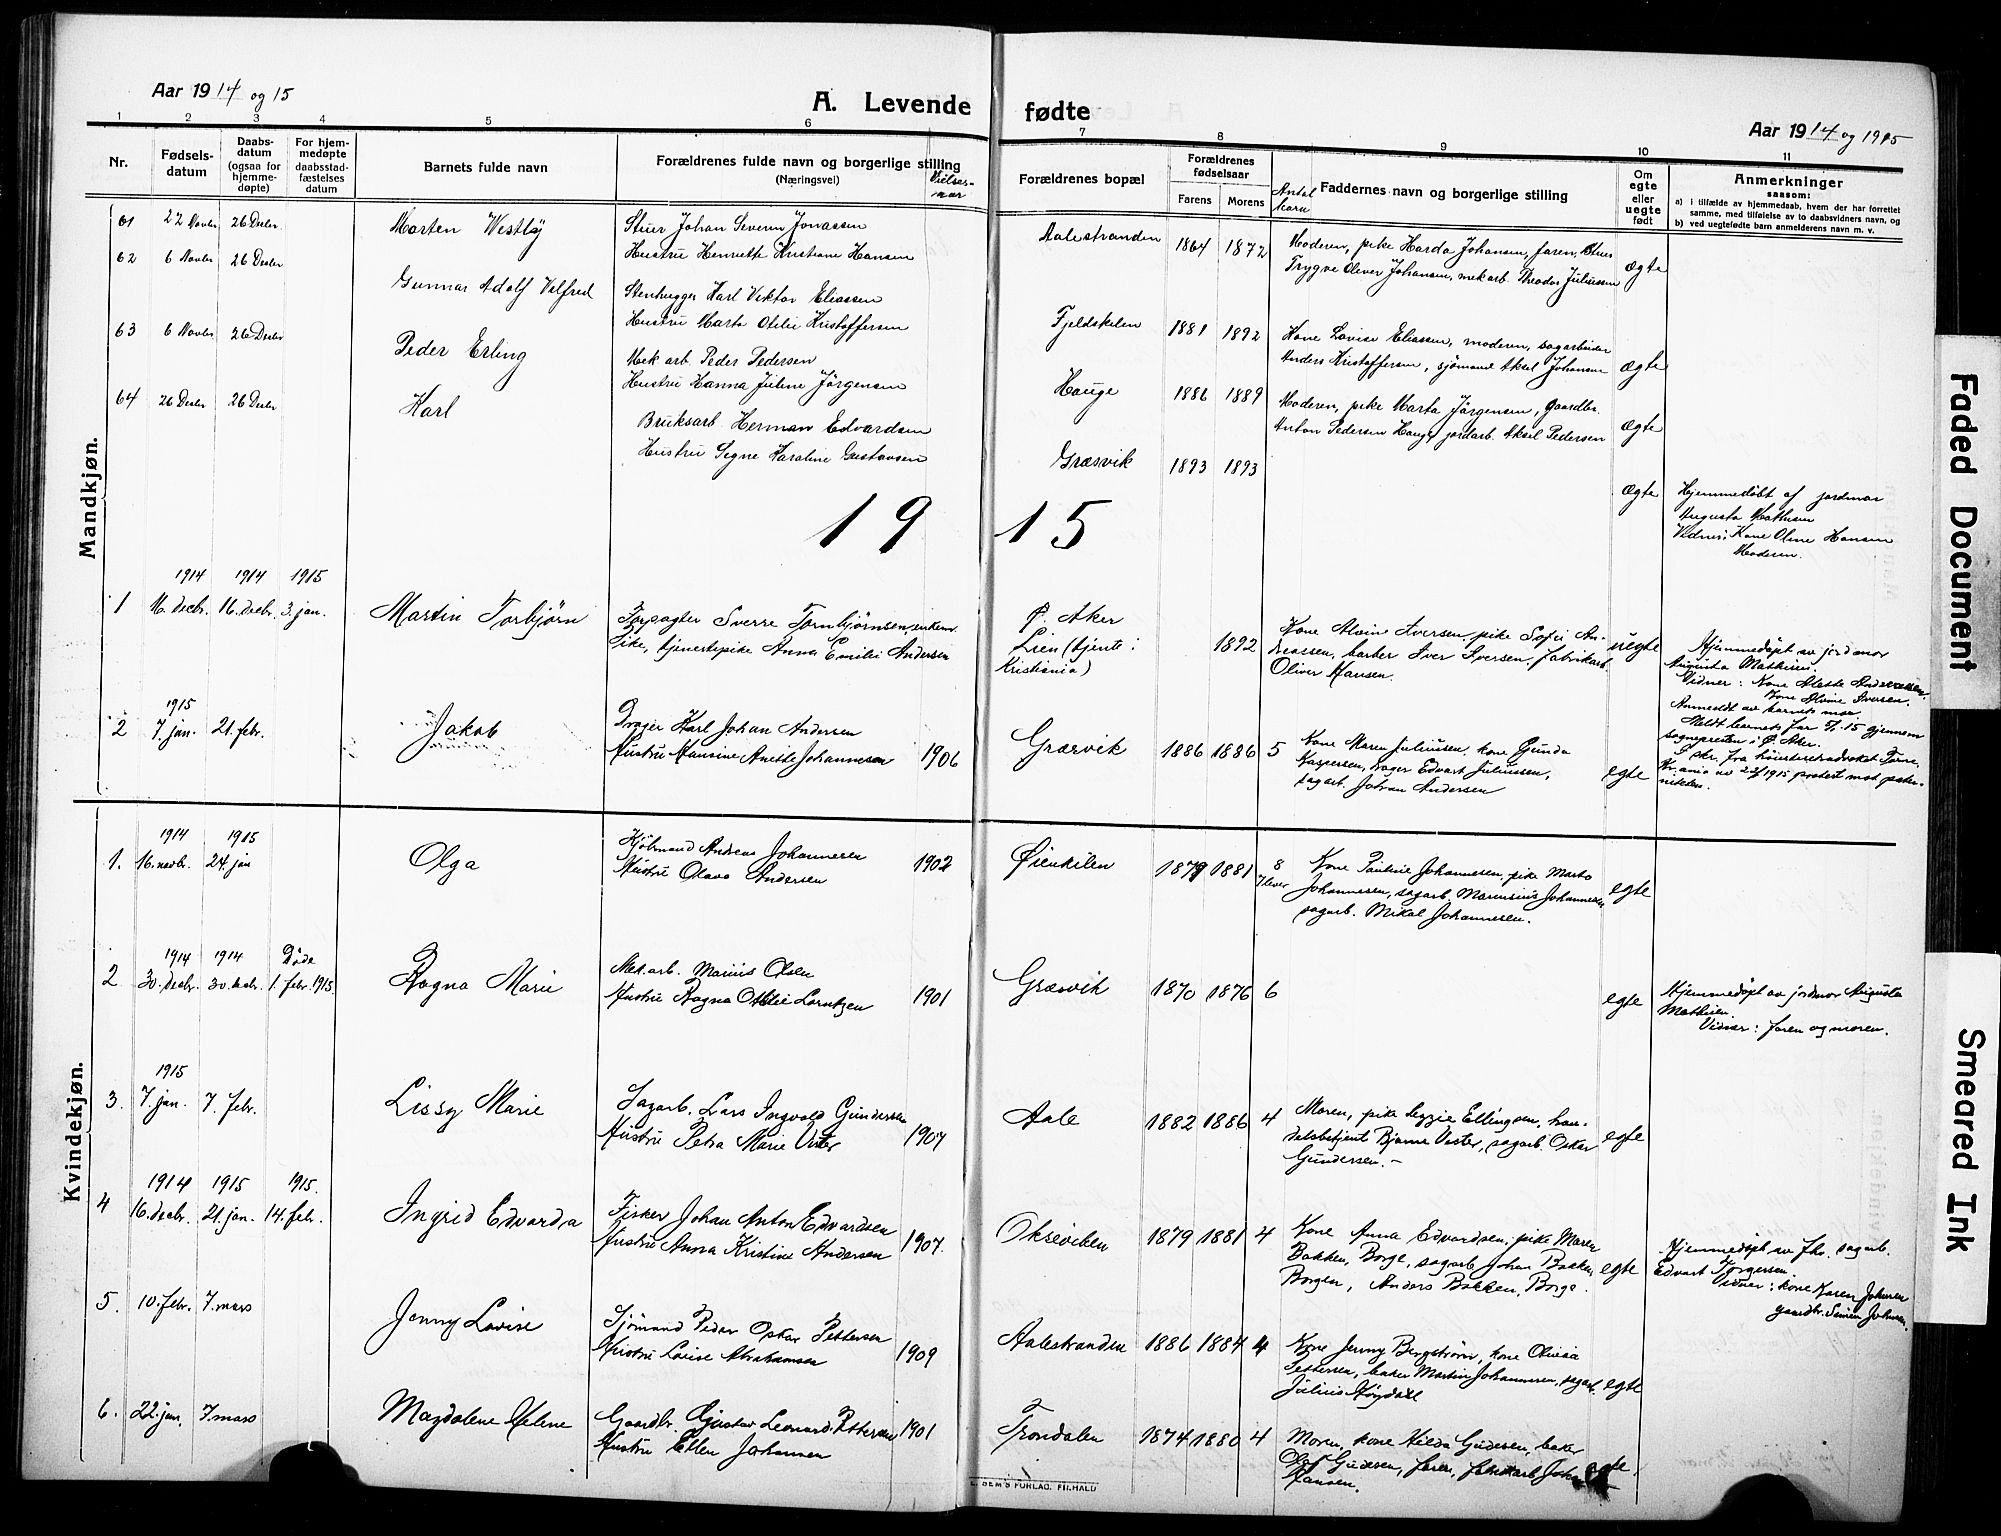 Aar 1914 og 15
A. Levende fødte
Aar 1914 og 1915
1 2 3 4 5 6 7 8 9 10 11
Nr.
Fødsels-
datum
Daabs-
datum
(ogsaa for
hjemme-
døpte)
For hjem-
medøpte
daabsstad-
fæstelses
datum
Barnets fulde navn
Forældrenes fulde navn og borgerlige stilling
(Næringsvei)
Vielses-
aar
Forældrenes bopæl
Forældrenes
fødselsaar
Farens Morens
Antal
barn
Faddernes navn og borgerlige stilling
Om
egte
eller
uegte
født
Anmerkninger
saasom:
a) i tilfælde av hjemmedaab, hvem der har forrettet
samme, med tilføielse av to daabsvidners navn, og
b) ved uegtefødte barn anmelderens navn m. v.
Mandkjøn.
61 22 Novbr 26 Decbr. Morten Westby
Stuer Johan Severin Jonassen
Hustru Henriette Kristiane Hansen
Aalestranden 1864 1872
Moderen, pike Harda Johansen, faren, Stuer
Trygve Oliver Johansen, mek arb. Theodor Juliussen
Ægte
62 6 Novbr 26 Decbr Gunnar Adolf Vilfred
Stenhugger Karl Viktor Eliassen
Hustru Marta Otilie Kristoffersen
Fjeldskilen 1881 1892
Kone Lovise Eliassen, moderen, sagarbeider
Anders Kristoffersen, sjømand Aksel Johansen
Ægte
63 6 Novbr 26 Decbr Peder Erling
Mek arb. Peder Pedersen
Hustru Hanna Juline Jörgensen
Hauge 1886 1889
Moderen, pike Marta Jörgensen, Gaardbr.
Anton Pedersen Hauge, jordarb. Aksel Pedersen
Ægte
64 26 Decbr 26 Decbr Karl
Bruksarb. Herman Edvardsen
Hustru Signe Karoline Gustavsen
Græsvik 1893 1893
Ægte
Hjemmedöbt af jordmor
Augusta Mathisen
Vidner: Kone Oline Hansen
Moderen.
1915
1914 1914 1915
1 16. decbr. 16. decbr. 3. jan. Martin Torbjørn
Forpagter Sverre Tornbjørnsen, enkem.
Pike, tjenestepike Anna Emilie Andersen
Ø. Aker
Lien (tjente i
Kristiania)
1892
Kone Alvin Iversen, pike Sofie An-
dreassen, barber Iver Iversen, fabrikarb.
Oliver Hansen.
uegte
Hjemmedøpt av jordmor
Augusta Mathisen.
Vidner: Kone Alette Andreassen,
kone Alvine Iversen.
Anmeldt av barnets mor.
Meldt barnets far 5/1 15 gjennem
sognepresten i Ø. Aker.
1915
2 7. jan. 21. febr. Jakob
Drager Karl Johan Andersen
Hustru Hansine Anette Johannesen 1906
Græsvik 1886 1886 5
Kone Maren Juliussen, kone Gunda
Kaspersen, drager Edvart Juliussen,
sagarb. Johan Andersen
egte
Kvindekjøn.
1914 1915
1. 16. novbr. 24. jan Olga
Kjølmand Andreas Johannesen
Hustru Olava Andersen 1902
Øienkilen 1879 1881 8
7 lever
Kone Pauline Johannesen, pike Marta
Johannesen, sagarb. Marensius Johannesen
sagarb. Mikal Johannesen.
egte
1914 1914 Døde
2 30. decbr. 30. decbr. 1. febr. 1915. Ragna Marie
Mek. arb. Marius Olsen
Hustru Ragna Otilie Lorntzen 1901
Græsvik 1870 1876 6
egte
Hjemmedøpt av jordmor Augusta
Mathisen.
Vidner: faren og moren.
1915
3. 7. jan. 7. febr. Lissy Marie
Sagarb. Lars Ingvald Gundersen
Hustru Petra Marie Vister 1907
Aale 1882 1886 4
Moren, pike Lizzie Ellingsen, han-
delsbetjent Bjarne Vister, sagarb. Oskar
Gundersen. –
egte
1914 1915 1915.
4 16. decbr. 21. jan. 14. febr. Ingrid Edvarda
Fisker Johan Anton Edvardsen
Hustru Anna Kristine Andersen 1907.
Oksviken 1879 1881 4
Kone Anna Edvardsen, pike Maren
Bakken, Borge, sagarb Johan Bakken
Borgen, Anders Bakken, Borge.
egte
Hjemmedøpt av fhv. sagarb.
Edvart Torgersen.
Vidner: kone Karen Johnsen
gaardbr. Simen Johnsen.
5. 10. febr. 7. mars Jenny Lovise
Sjømand Peder Oskar Pettersen
Hustru Lovise Abrahamsen 1909
Aalestranden 1886 1884 4
Kone Jenny Bergstrøm, kone Olivia
Pettersen, baker Martin Johannesen, sagarb.
Julius Høydahl
egte
6. 22. jan. 7. mars Magdalene Helene
Gaardbr. Gustav Leonard Pettersen 1901
Hustru Ellen Johansen
Trondalen 1874 1880 4
Moren, kone Hilda Gudesen, baker
Olaf Gudesen, faren, fabrikarb. Johan
Hansen.
egte.
SEM'S FORLAG, FR.HALD
Faded Document
Smeared Ink